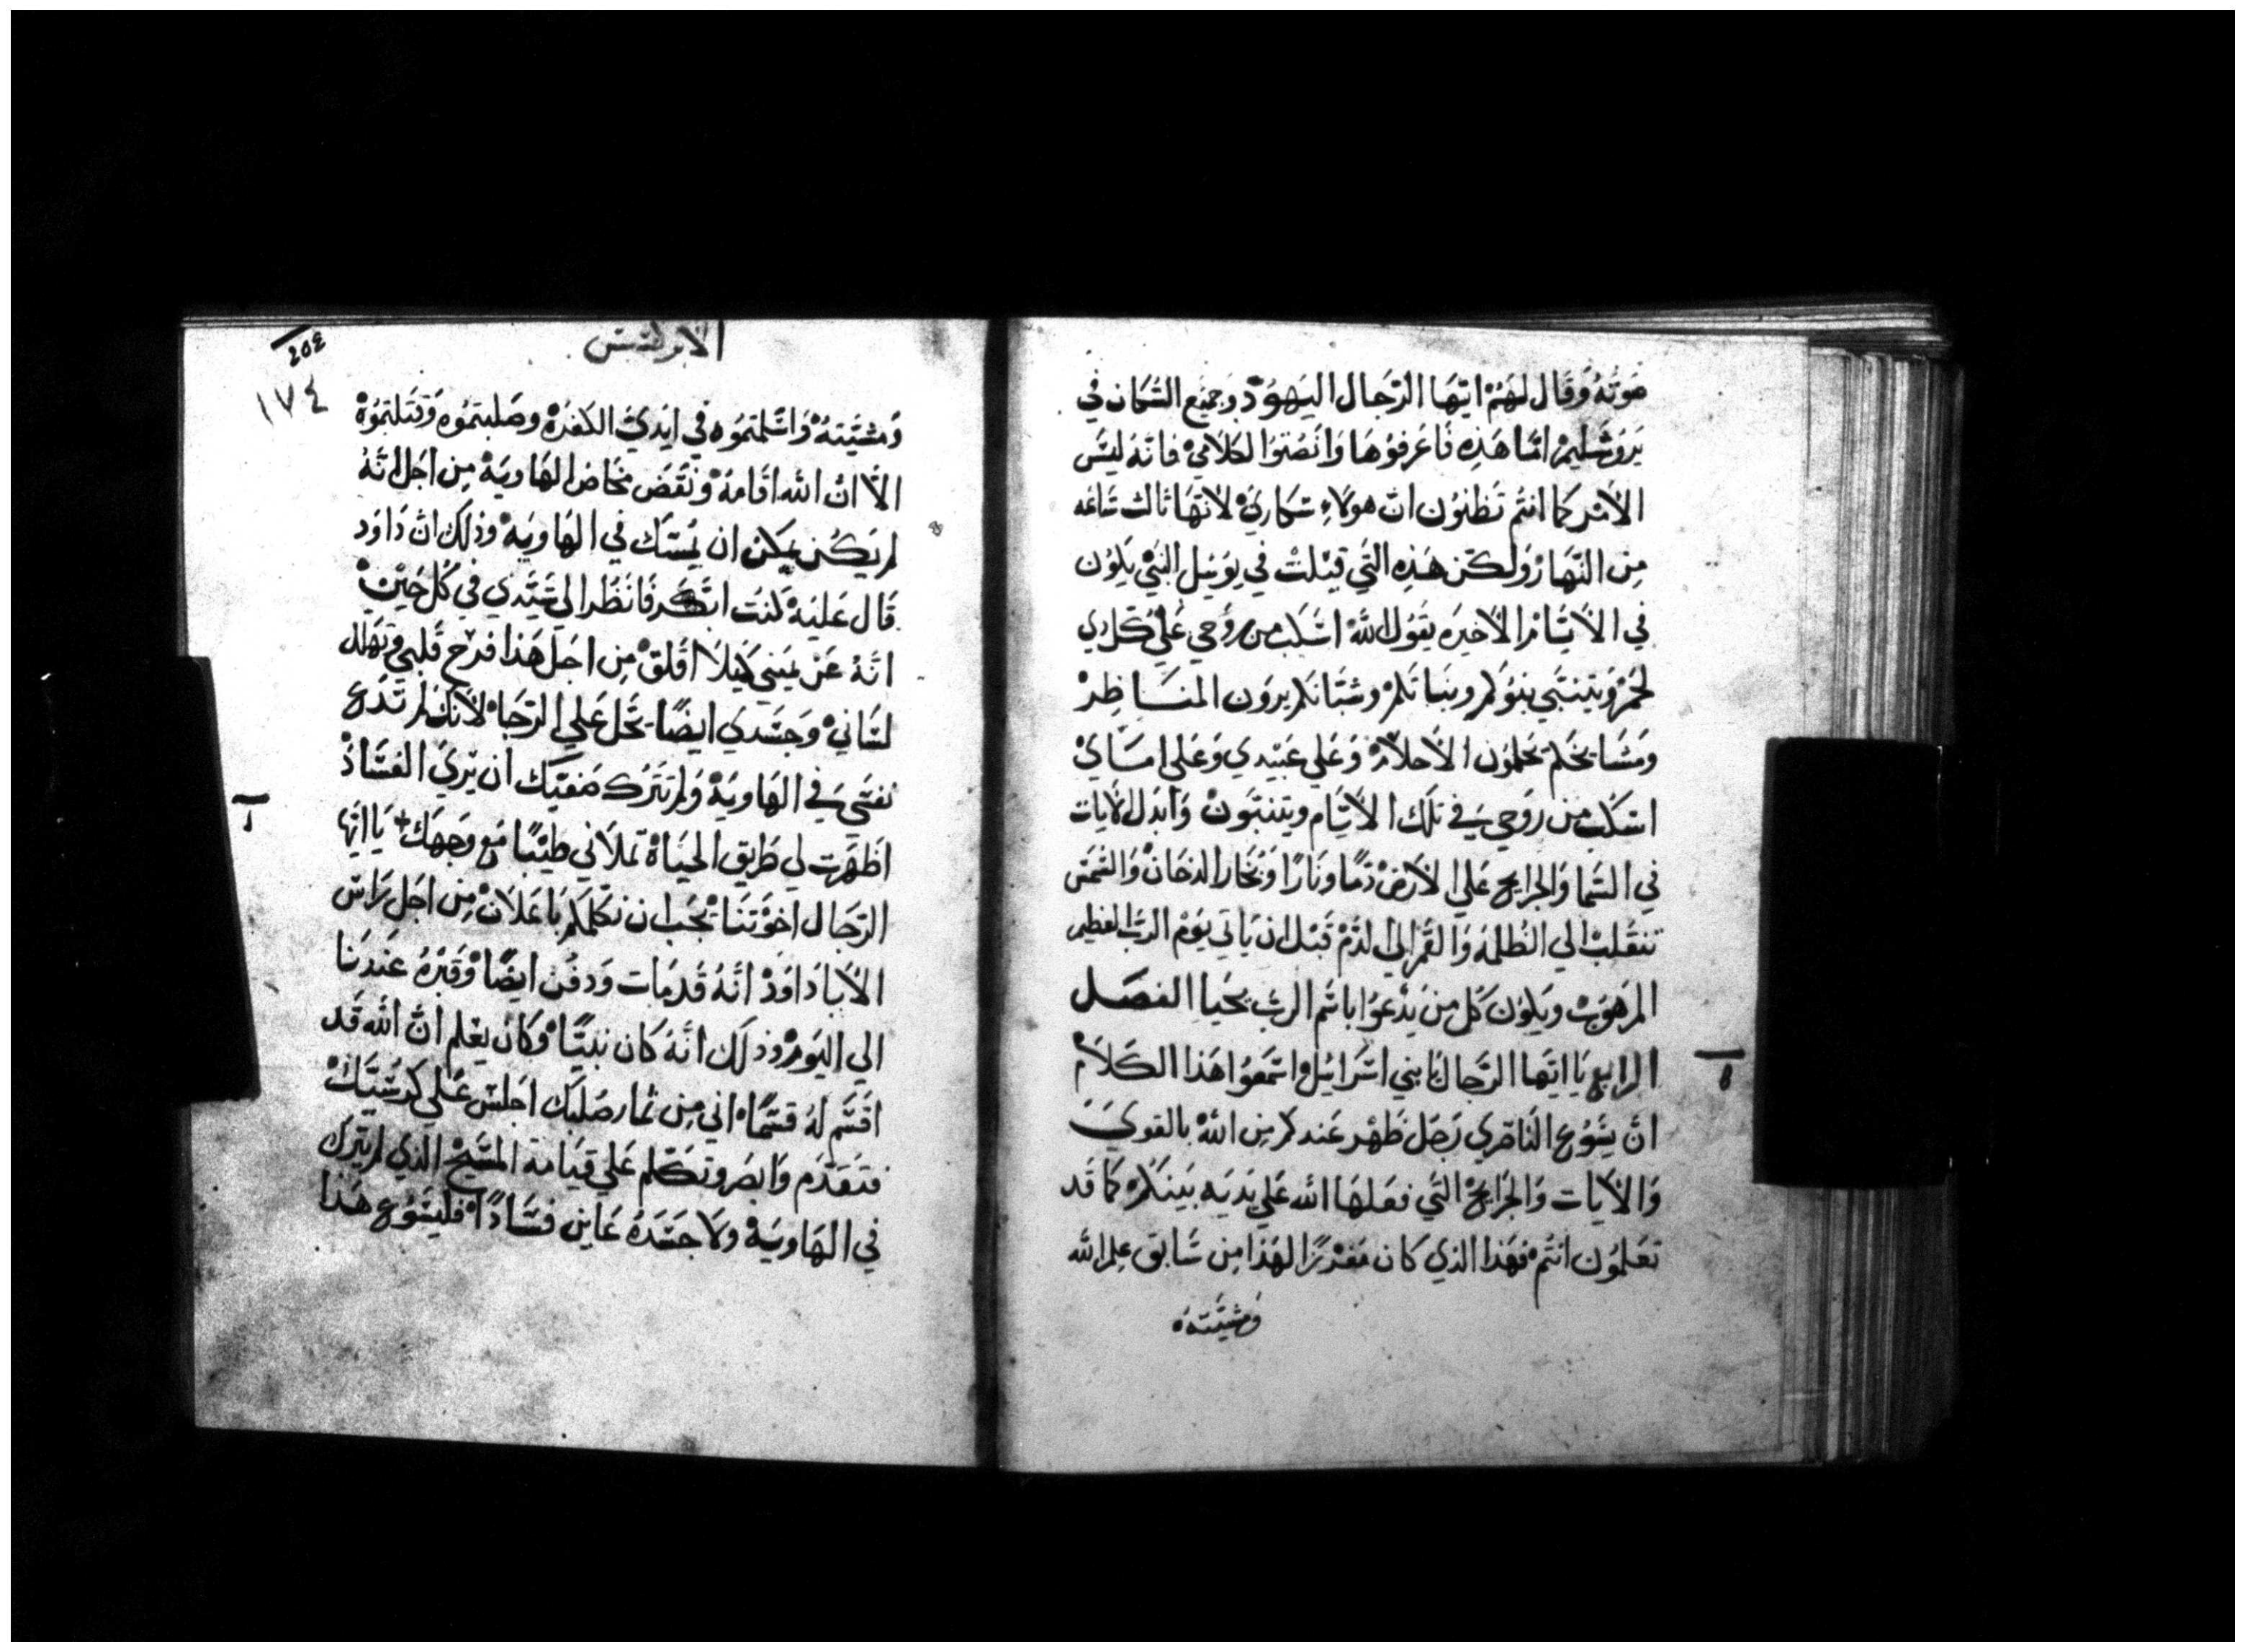 صَوتهُ وَقَال لهَمْ ايّهَا الرّجَال اليَهوُدْ وجَميَع السُكان في
يَروُشَليمْ امّا هَذِه فَاعَرفوُهَا وَانَصُتوُا لكلاَميْ فانّهَ ليسَ
الاَمْر كما انتُم تَظنوُن انّ هولاَءِ سَكاريَ لانهَا ثالث سَاعَه
مِن النّهَارْ وَلكن هَذِه التَي قيْلتْ في يوَئيل النبَيْ يَكوُن
في الاَيّامْ الاخيَره يَقوُل اللّهْ اسَكبْ من رُوُحي عَلي كل ذي
لحَمْ وَيتنبّي بنوُكم وبنَاتكمْ وشبّانكم يرَوَن المنَاظِرْ
وَمشَايخكم يحَلموُن الاَحلاَمْ وَعَلي عَبيْدي وَعَلي امَايْ
اسَكبْ من رَوحي في تلَك الاَيّام ويتنبّوَنْ وَابدَل الاَيات
في السَما وَالجرايح عَلي الاَرَضْ دَمًا ونَارًا وَبُخَار الدخَانْ وَالشَمَس
تنقَلبْ الي الظُلمهْ وَالقمَر الي الدَمْ قَبْل ان يَاتي يَوُمْ الربّ العَظيم
المرَهوَبْ ويَكوُن كُل مِن يَدْعوُا باسَم الربّ يحَيا الفصَل
الرابع يَا ايّهَا الرّجال يَا بني اسَرَائيل اسَمعوُا هَذا الكَلاَمْ
انّ يسَوُع النَاصَري رَجل ظَهْر عَندكم مِن اللّهْ بالقوَيَ
وَالاَيَات وَالجرَايحْ التَي فعَلهَا اللّه عَلي يَديَه بَينَكمْ كما قَد
تعَلموُن انتُمْ فهَذا الذي كَان مَفرَزًا لهَذا مِن سَابق عِلم اللّه
وَمشيّته
الابركسس
204
١٧٤
وَمشيّتهْ وَاسَلمتموُه في ايَدي الكفرَهْ وصَلبتموُه وَقتَلتموُهْ
الاّ انّ اللّه اقَامهْ وَنقَضَ مخَاض الهَاويَهْ مِن اجَل انّهُ
لم يَكُن يمكن ان يمُسَك في الهَاويَهْ وَذلكَ انّ دَاوَد
قَال عَليَهْ كَنتُ ابتكَر فَانظُر الي سَيّدي في كُل حَينْ
انّهُ عَن يمَيني كيَلا اقَلقْ مِن اجَل هَذا فرَح قَلبي وتَهلل
لسَانيْ وَجسَدي ايضًا يحَل عَلي الرّجَاْ لانكْ لم تَدَع
نفسَي في الهَاويَهْ وَلم تترَك صَفيّك ان يَريَ الفسَادْ
اظَهَرت لي طَريق الحيَاهْ تملاَني طيْبًا مَع وَجَهَك يَا ايّهَا
الرّجَال اخوَتنَا يجَب ان نكَلمَكم بَاعَلاَنْ مِن اجَل رَاس
الاَبَا دَاودْ انّهُ قَد مَات وَدفُن ايضًا وَقَبرُه عَندَنا
الي اليَومْ وذلَك انّهُ كَان نبيًّا وَكَان يعَلم انّ اللّه قَد
اقَسَم لهْ قسَمًا اني مِن ثمار صَلبك اجَلسَ عَلي كرسُيّكْ
فتقَدّم وَابصَر وتكلم عَلي قيَامة المسَيحْ الذي لم يتَرك
في الهَاويَهْ وَلا جسَدهْ عَاين فسَادًا فليسَوُع هَذا